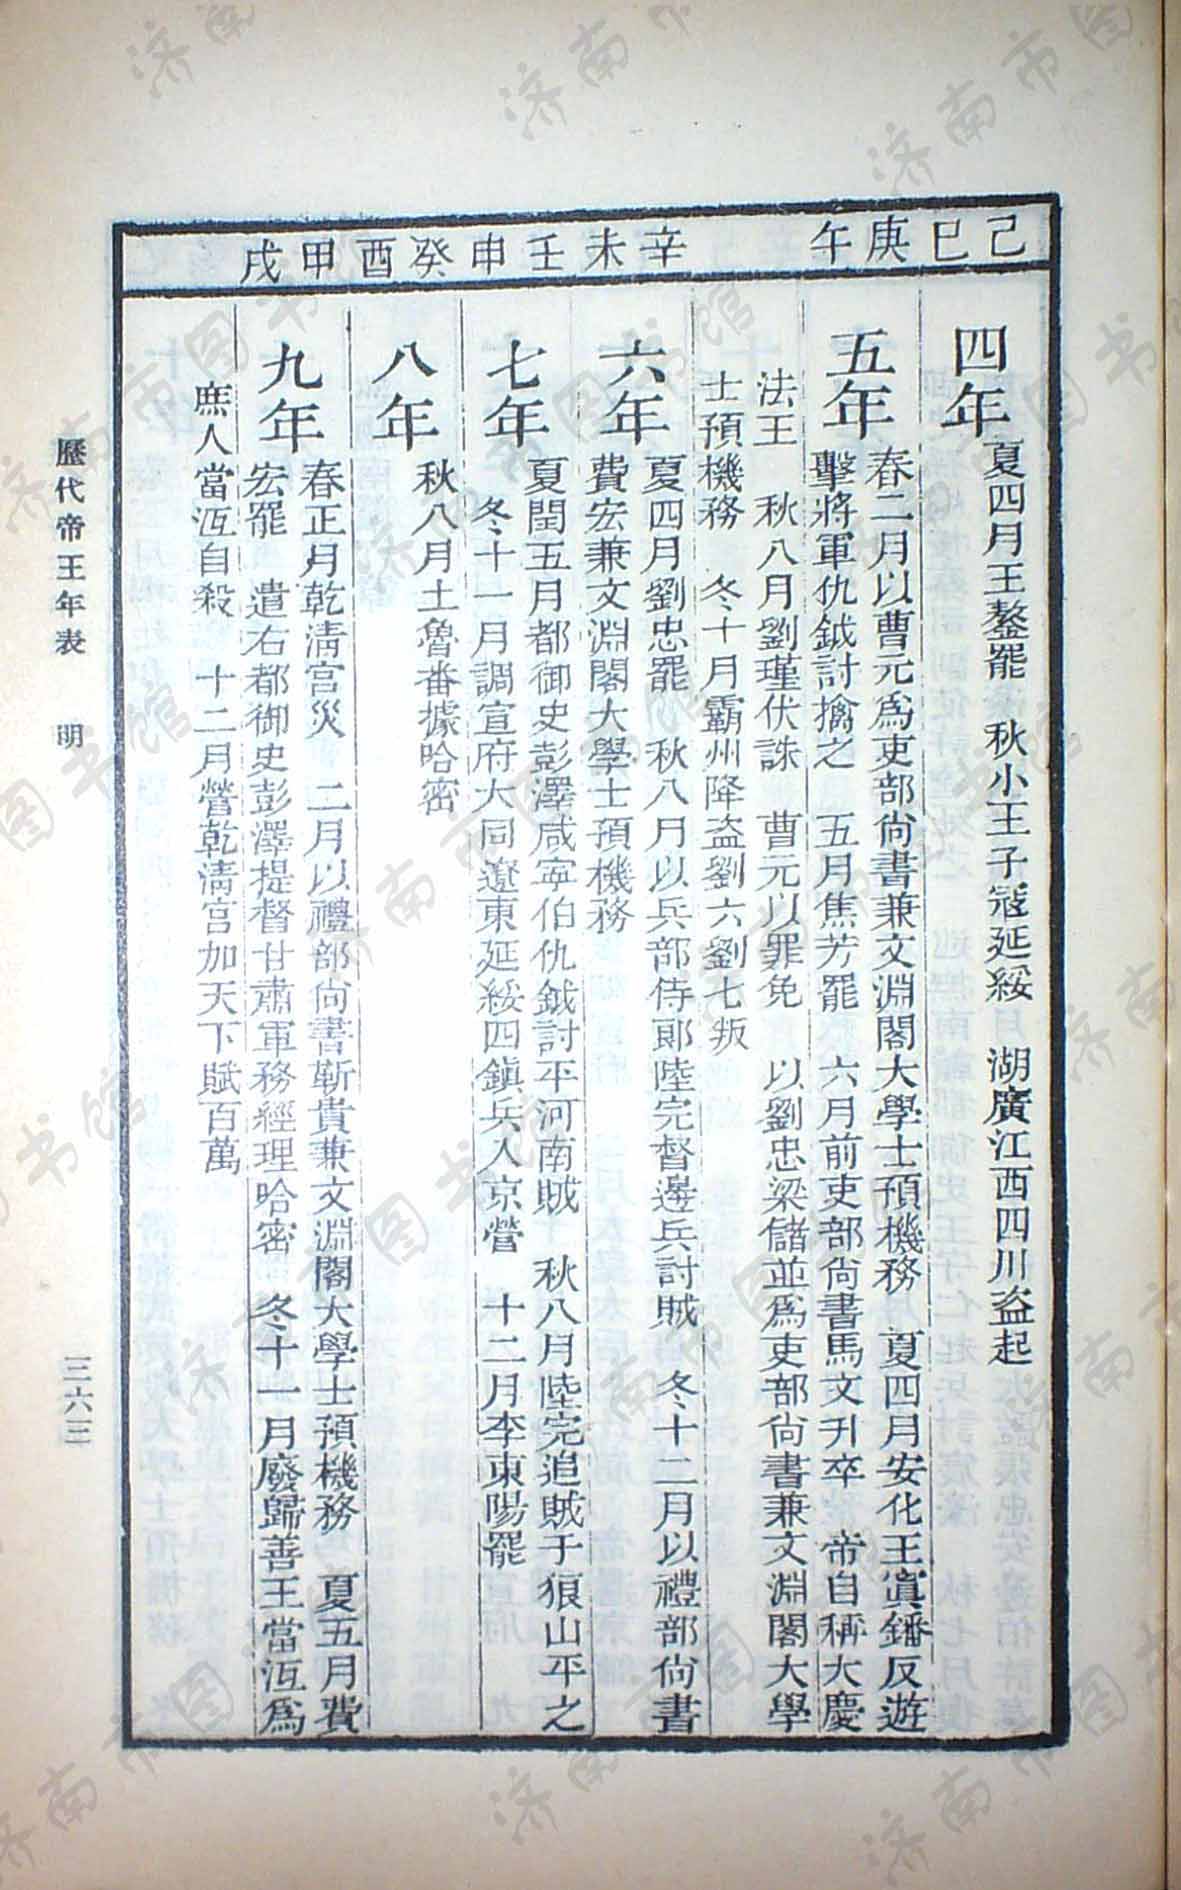 己巳 庚午 辛未 壬申 癸酉 甲戌
四年
夏四月王鏊罷 秋小王子寇延綏 湖廣江西四川盜起
五年
春二月以曹元爲吏部尙書兼文淵閣大學士預機務 夏四月安化王寘鐇反遊
擊將軍仇鉞討擒之 五月焦芳罷 六月前吏部尙書馬文升卒 帝自稱大慶
法王 秋八月劉瑾伏誅 曹元以罪免 以劉忠梁儲並爲吏部尙書兼文淵閣大學
士預機務 冬十月霸州降盜劉六劉七叛
六年
夏四月劉忠罷 秋八月以兵部侍郞陸完督邊兵討賊 冬十二月以禮部尙書
費宏兼文淵閣大學士預機務
七年
夏閏五月都御史彭澤咸寧伯仇鉞討平河南賊 秋八月陸完追賊于狼山平之
冬十一月調宣府大同遼東延綏四鎭兵入京營 十二月李東陽罷
八年
秋八月土魯番據哈密
九年
春正月乾淸宮災 二月以禮部尙書靳貴兼文淵閣大學士預機務 夏五月費
宏罷 遣右都御史彭澤提督甘肅軍務經理哈密 冬十一月廢歸善王當沍爲
庶人當沍自殺 十二月營乾淸宮加天下賦百萬
歷代帝王年表 明
三六三
济南市图书馆